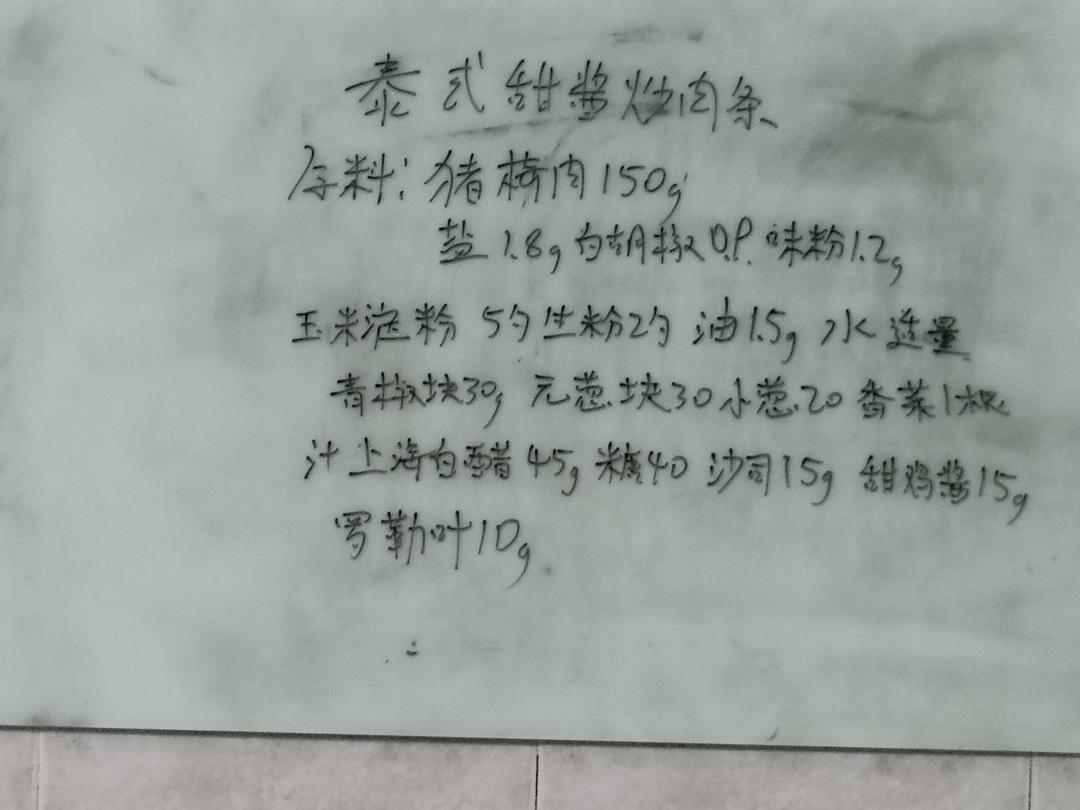 泰式甜酱炒肉条
原料:猪梅肉150g
盐1.8g 白胡椒0.8 味粉1.2g
玉米淀粉 5勺 生粉2勺 油15g 水适量
青椒块30g 元葱块30 小葱20 香菜1棵
汁 上海白醋45g 糖40 沙司15g 甜鸡酱15g
罗勒叶10g